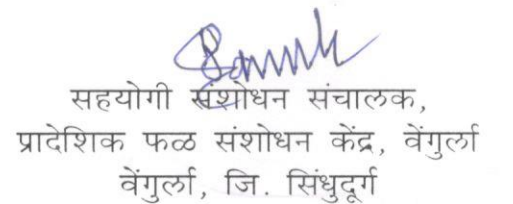 सहयोगी संशोधन संचालक,
प्रादेशिक फळ संशोधन केंद्र, वेंगुर्ला
वेंगुर्ला, जि. सिंधुदूर्ग